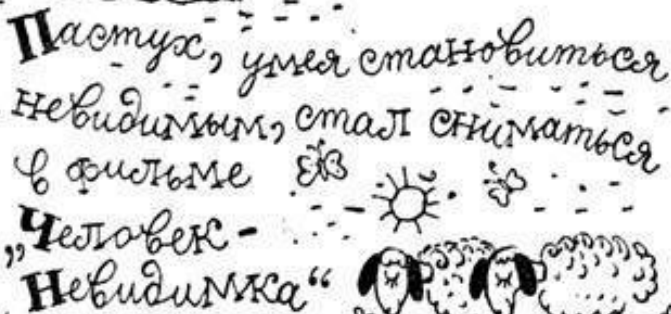 Пастух, умея становиться
невидимым, стал сниматься
в фильме
„Человек-
Невидимка“